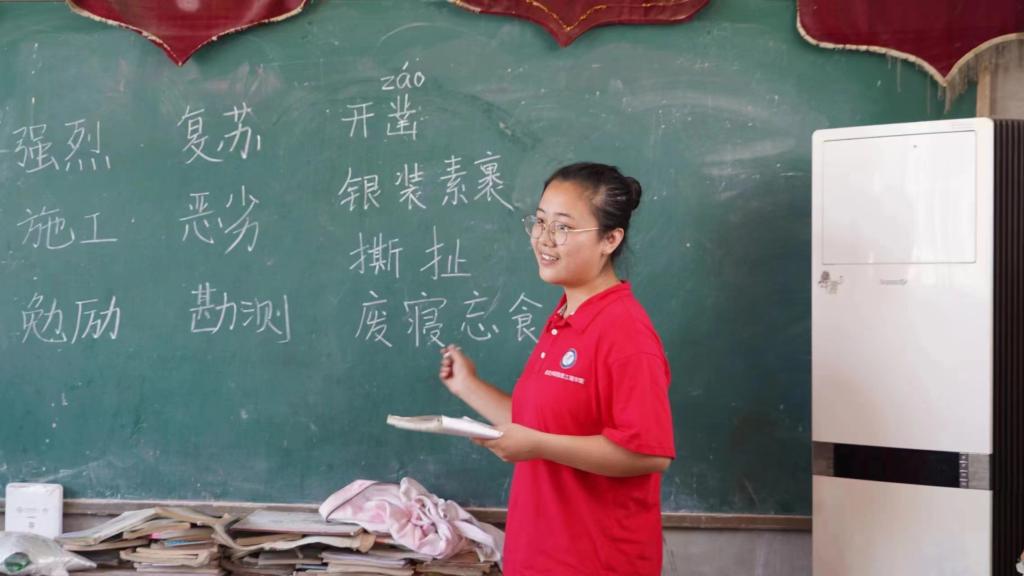 强烈 复苏 záo
开凿
施工 恶劣 银装素裹
撕扯
勉励 勘测 废寝忘食